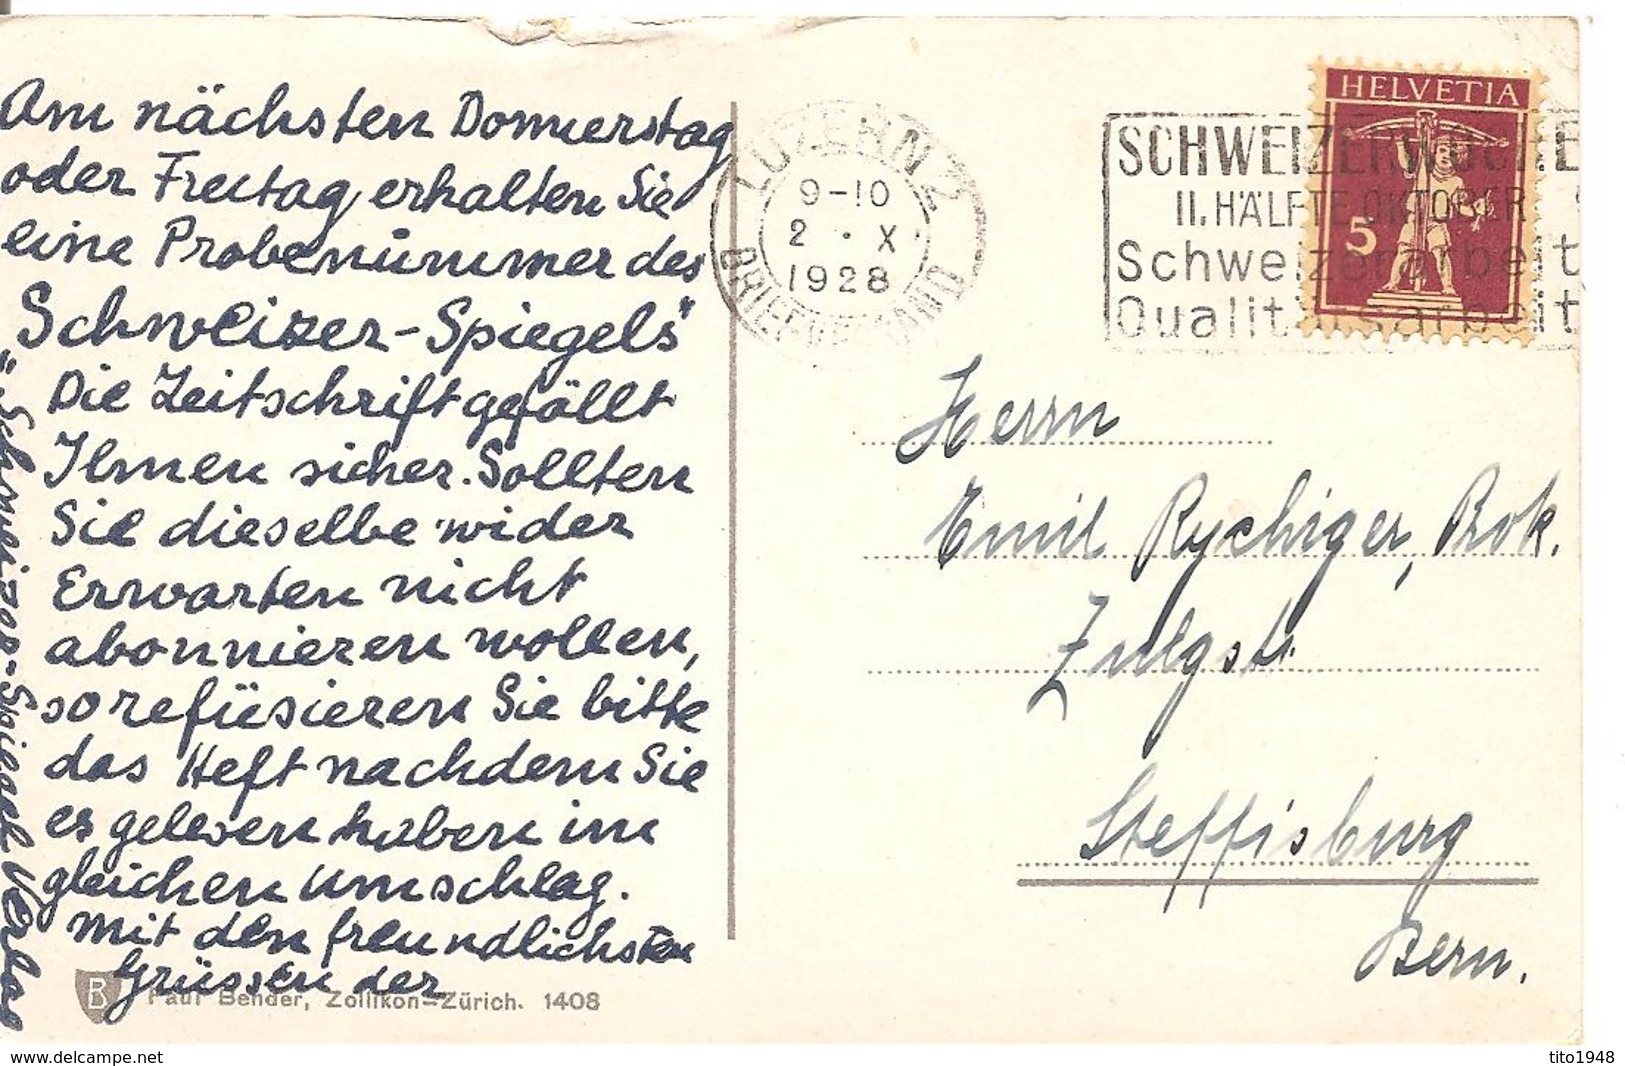 Am nächsten Donnerstag
oder Freitag erhalten Sie
eine Probenummer des
Schweizer-Spiegels"
Die Zeitschrift gefällt
Ihnen sicher. Sollten
Sie dieselbe wider
Erwarten nicht
abonnieren wollen,
so refüsieren Sie bitte
das Heft nachdem Sie
es gelesen haben im
gleichen Umschlag.
Mit den freundlichsten
Grüssen der
"Schweizer-Spiegel Verlag
B
Paul Bender, Zollikon-Zürich. 1408
LUZERN 2
9-10
2 · X
1928
BRIEFVERSAND
SCHWEIZERWOCHE
II. HÄLFTE OKTOBER
Schweizerarbeit
Qualitätsarbeit
HELVETIA
5
Herrn
Emil Rychiger, Prok.
Zulgstr.
Steffisburg
Bern.
tito1948